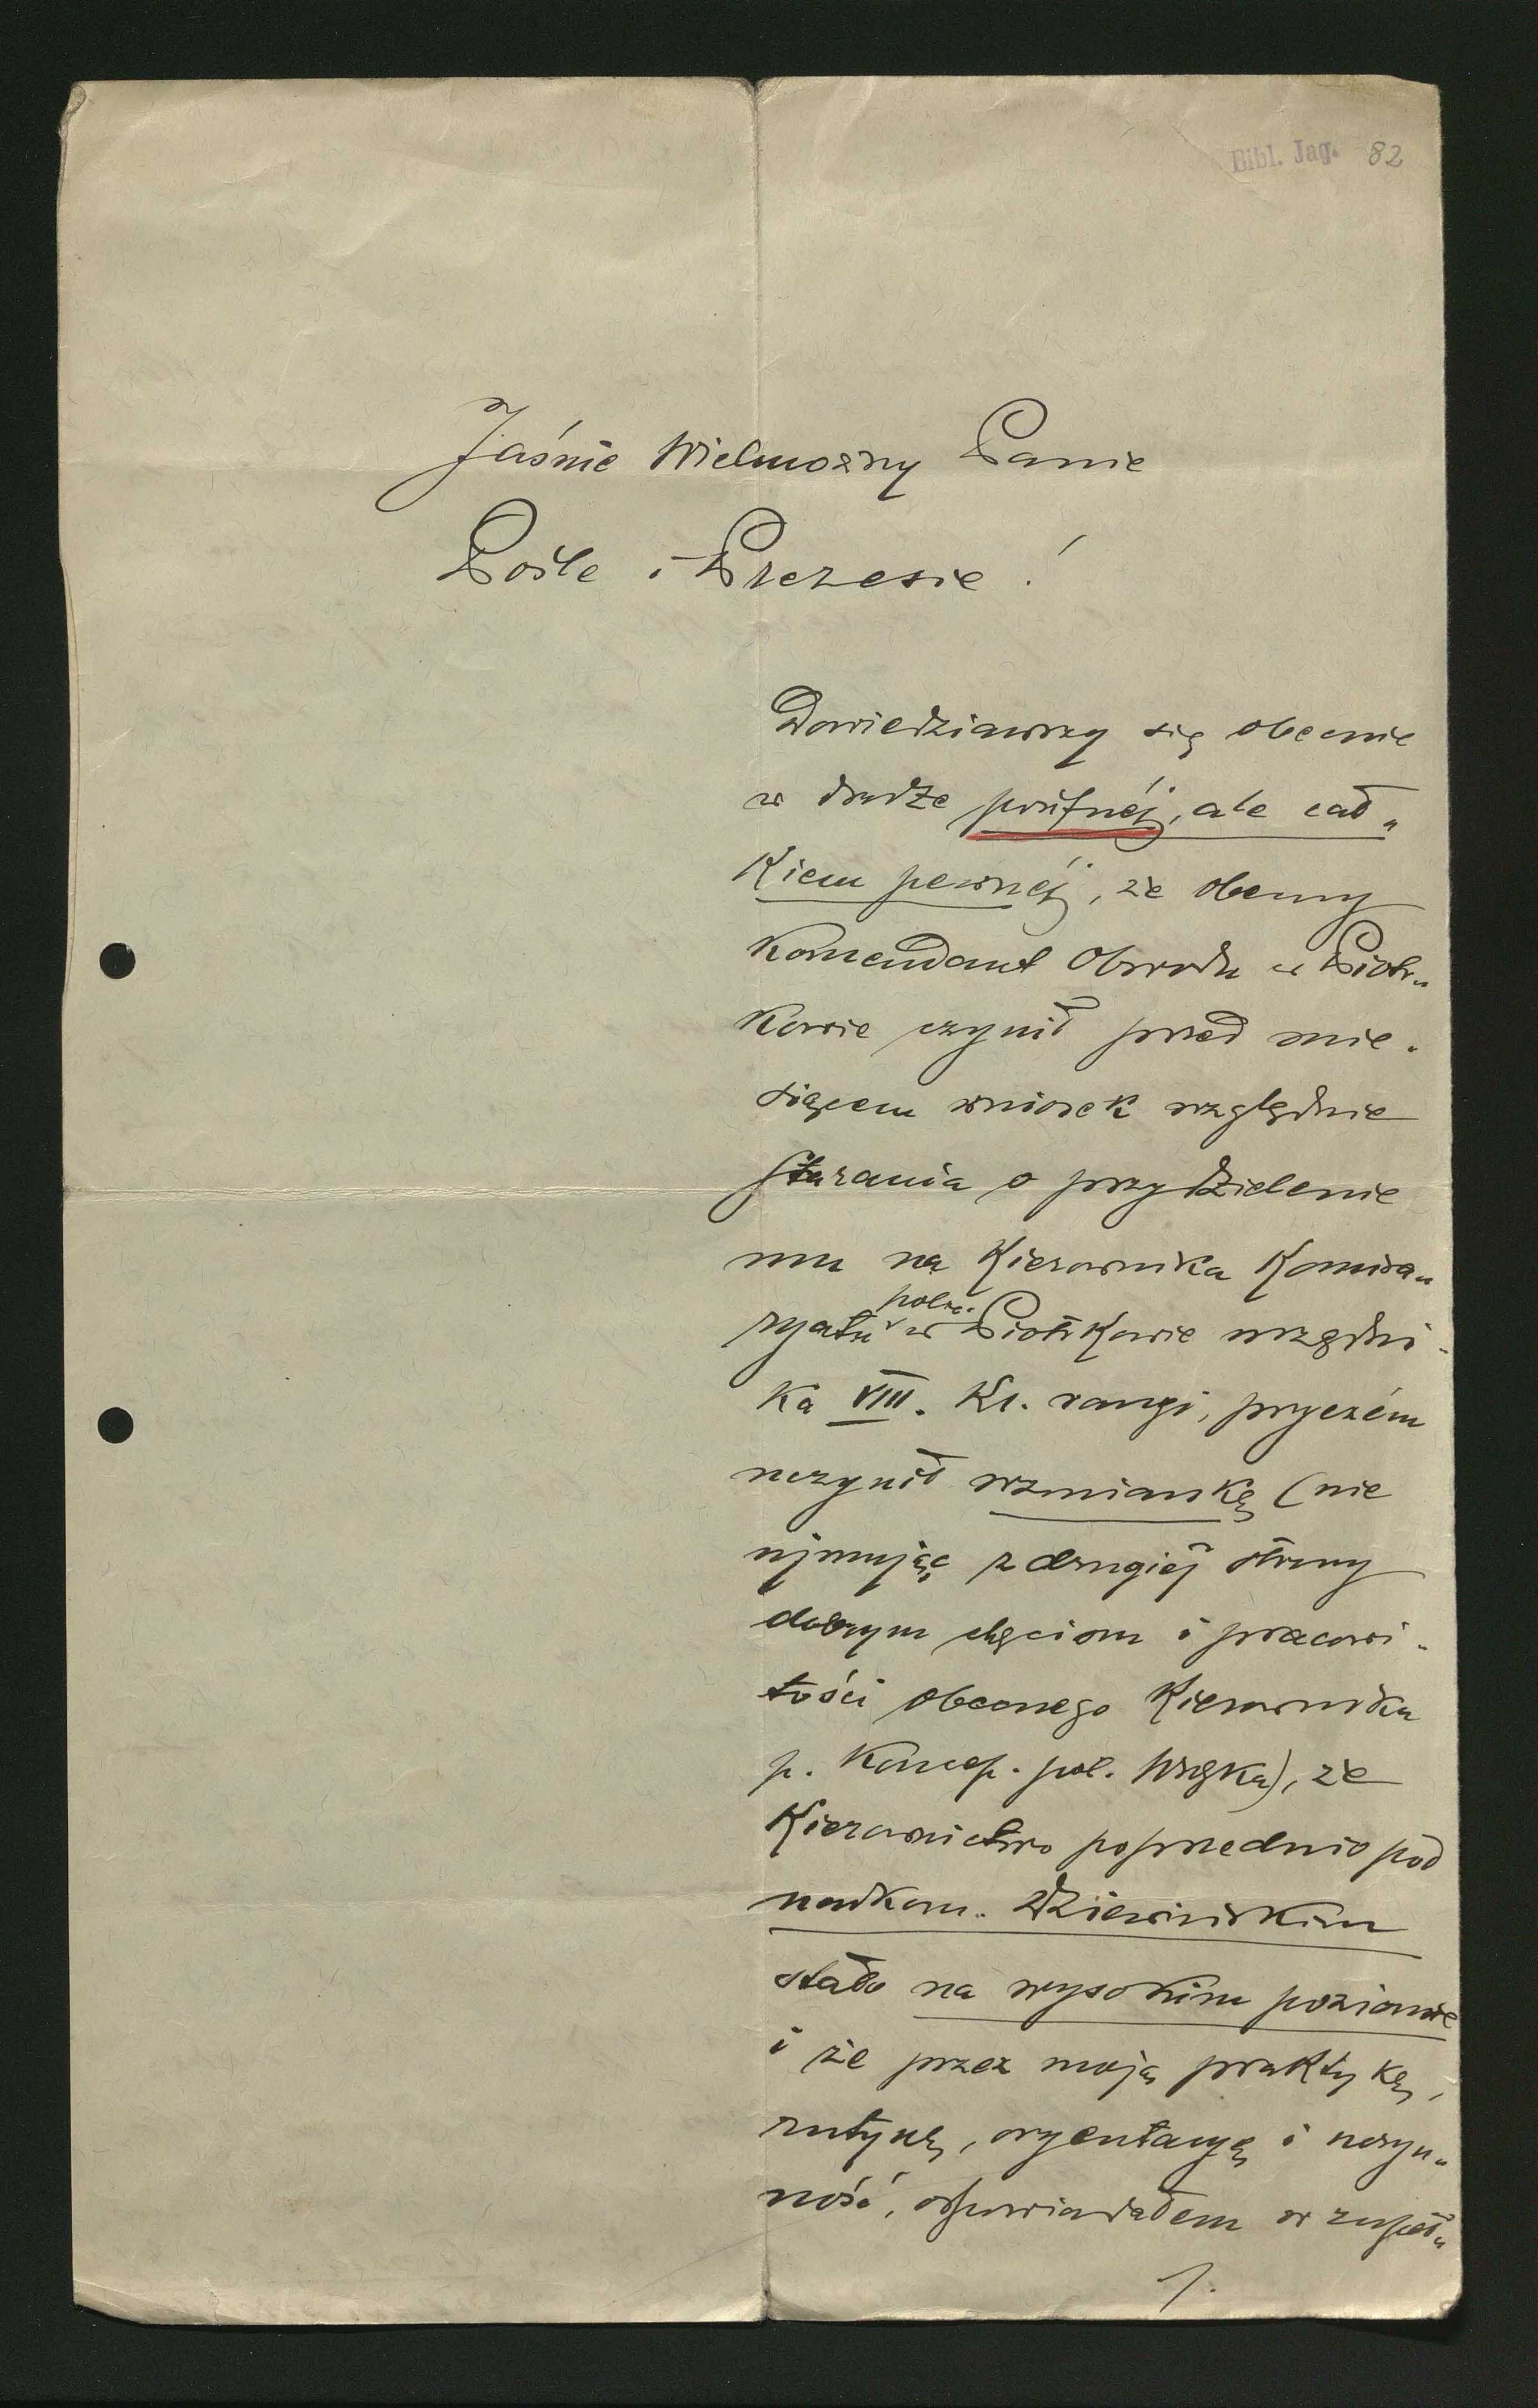 Bibl. Jag. 82
Jaśnie Wielmożny Panie
Pośle i Prezesie!
Dowiedziawszy się obecnie
w drodze poufnéj, ale cał„
kiem pewnéj, że obecny
Komendant Obwodu w Piotr„
kowie czynił przed mie-
siącem wniosek względnie
starania o przydzielenie
mu na Kierownika Komisa„
ryatu polic. w Piotrkowie urzędni-
ka VIII. kl. rangi, przyczém
uczynił wzmiankę (nie
ujmując z drugiéj strony
dobrym chęciom i pracowi-
tości obecnego Kierownika
p. Koncep. pol. Wręka), że
Kierownictwo poprzednio pod
nadkom. Dziewińskim
stało na wysokim poziomie
i że przez moją praktykę,
rutynę, oryentacyę i
ność, odpowiadałem w zupeł„
1.